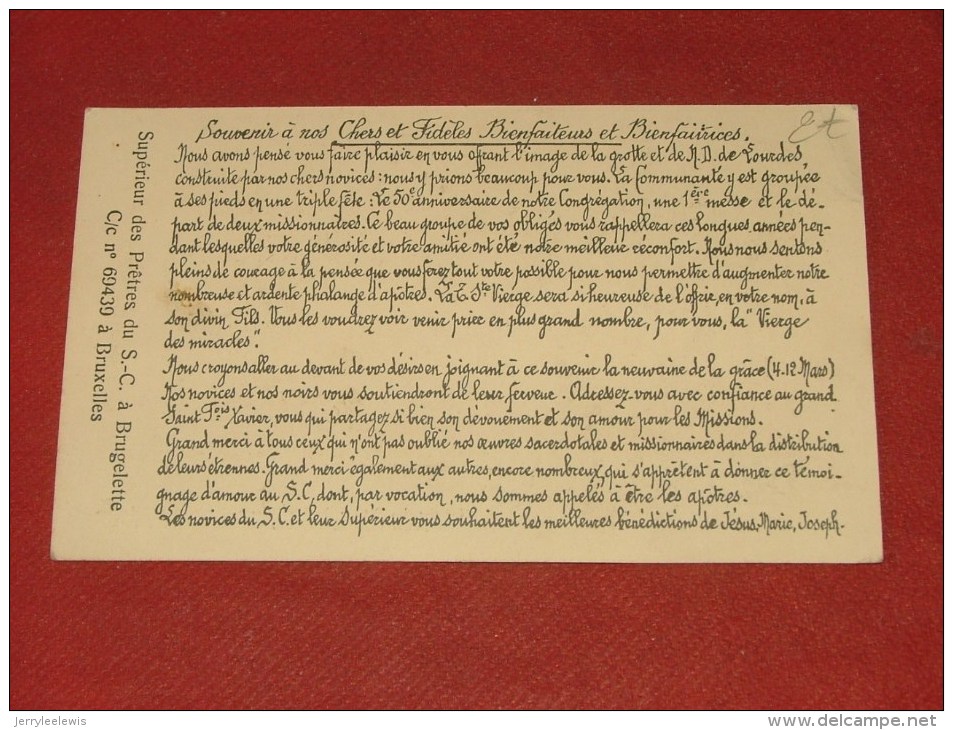 Souvenir à nos Chers et Fidèles Bienfaiteurs et Bienfaitrices.
Nous avons pensé vous faire plaisir en vous offrant l'image de la grotte et de N.D. de Lourdes,
construite par nos chers novices: nous y prions beaucoup pour vous. La Communauté y est groupée
à ses pieds en une triple fête: le 50e anniversaire de notre Congrégation, une 1ère messe et le dé-
part de deux missionnaires. Ce beau groupe de vos obligés vous rappellera ces longues années pen-
dant lesquelles votre générosité et votre amitié ont été notre meilleur réconfort. Nous nous sentons
pleins de courage à la pensée que vous ferez tout votre possible pour nous permettre d'augmenter notre
nombreuse et ardente phalange d'apôtres. La T. Ste Vierge sera si heureuse de l'offrir, en votre nom, à
son divin Fils. Vous les voudrez voir venir prier en plus grand nombre, pour vous, la "Vierge
des miracles".
Nous croyons aller au devant de vos désirs en joignant à ce souvenir la neuvaine de la grâce (4-12 Mars)
Nos novices et nos noirs vous soutiendront de leur ferveur. Adressez-vous avec confiance au grand
Saint Frois Xavier, vous qui partagez si bien son dévouement et son amour pour les Missions.
Grand merci à tous ceux qui n'ont pas oublié nos œuvres sacerdotales et missionnaires dans la distribution
de leurs étrennes. Grand merci également aux autres, encore nombreux, qui s'apprêtent à donner ce témoi-
gnage d'amour au S.C, dont, par vocation, nous sommes appelés à être les apôtres.
Les novices du S.C. et leur Supérieur vous souhaitent les meilleures bénédictions de Jésus, Marie, Joseph.
Supérieur des Prêtres du S.-C. à Brugelette
C/c n° 69439 à Bruxelles
jerryleelewis
www.delcampe.net